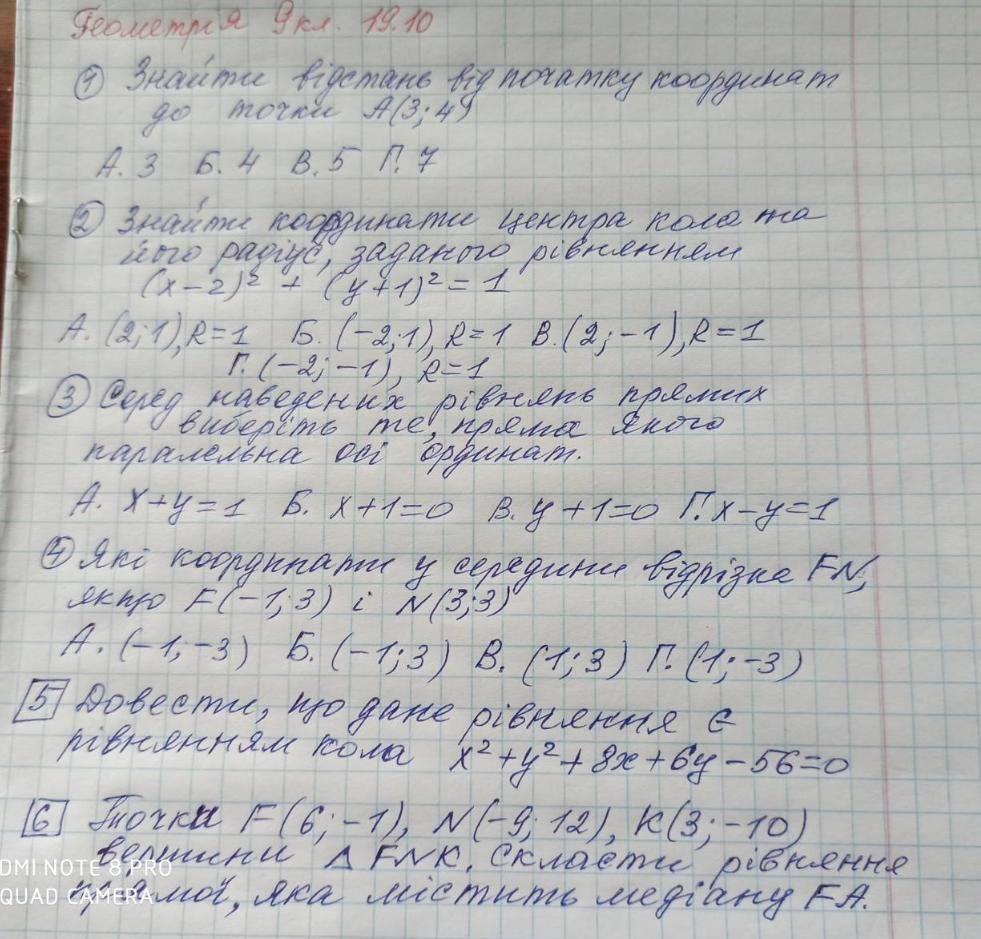 Геометрія 9 кл. 19.10
① Знайти відстань від початку координат
до точки А(3; 4)
А. 3 Б. 4 В. 5 Г. 7
② Знайти координати центра кола та
його радіус, заданого рівнянням
(x-2)² + (y+1)² = 1
А. (2; 1), R=1 Б. (-2; 1), R=1 В. (2; -1), R=1
Г. (-2; -1), R=1
③ Серед наведених рівнянь прямих
виберіть те, пряма якого
паралельна осі ординат.
А. x+y=1 Б. x+1=0 В. y+1=0 Г. x-y=1
④ Які координати у середини відрізка FN,
якщо F(-1; 3) і N(3; 3)
А. (-1; -3) Б. (-1; 3) В. (1; 3) Г. (1; -3)
5 Довести, що дане рівняння є
рівнянням кола x²+y²+8x+6y-56=0
6 Точки F(6; -1), N(-9; 12), K(3; -10)
вершини Δ FNK. Скласти рівняння
прямої, яка містить медіану FA.
DMI NOTE 8 PRO
QUAD CAMERA